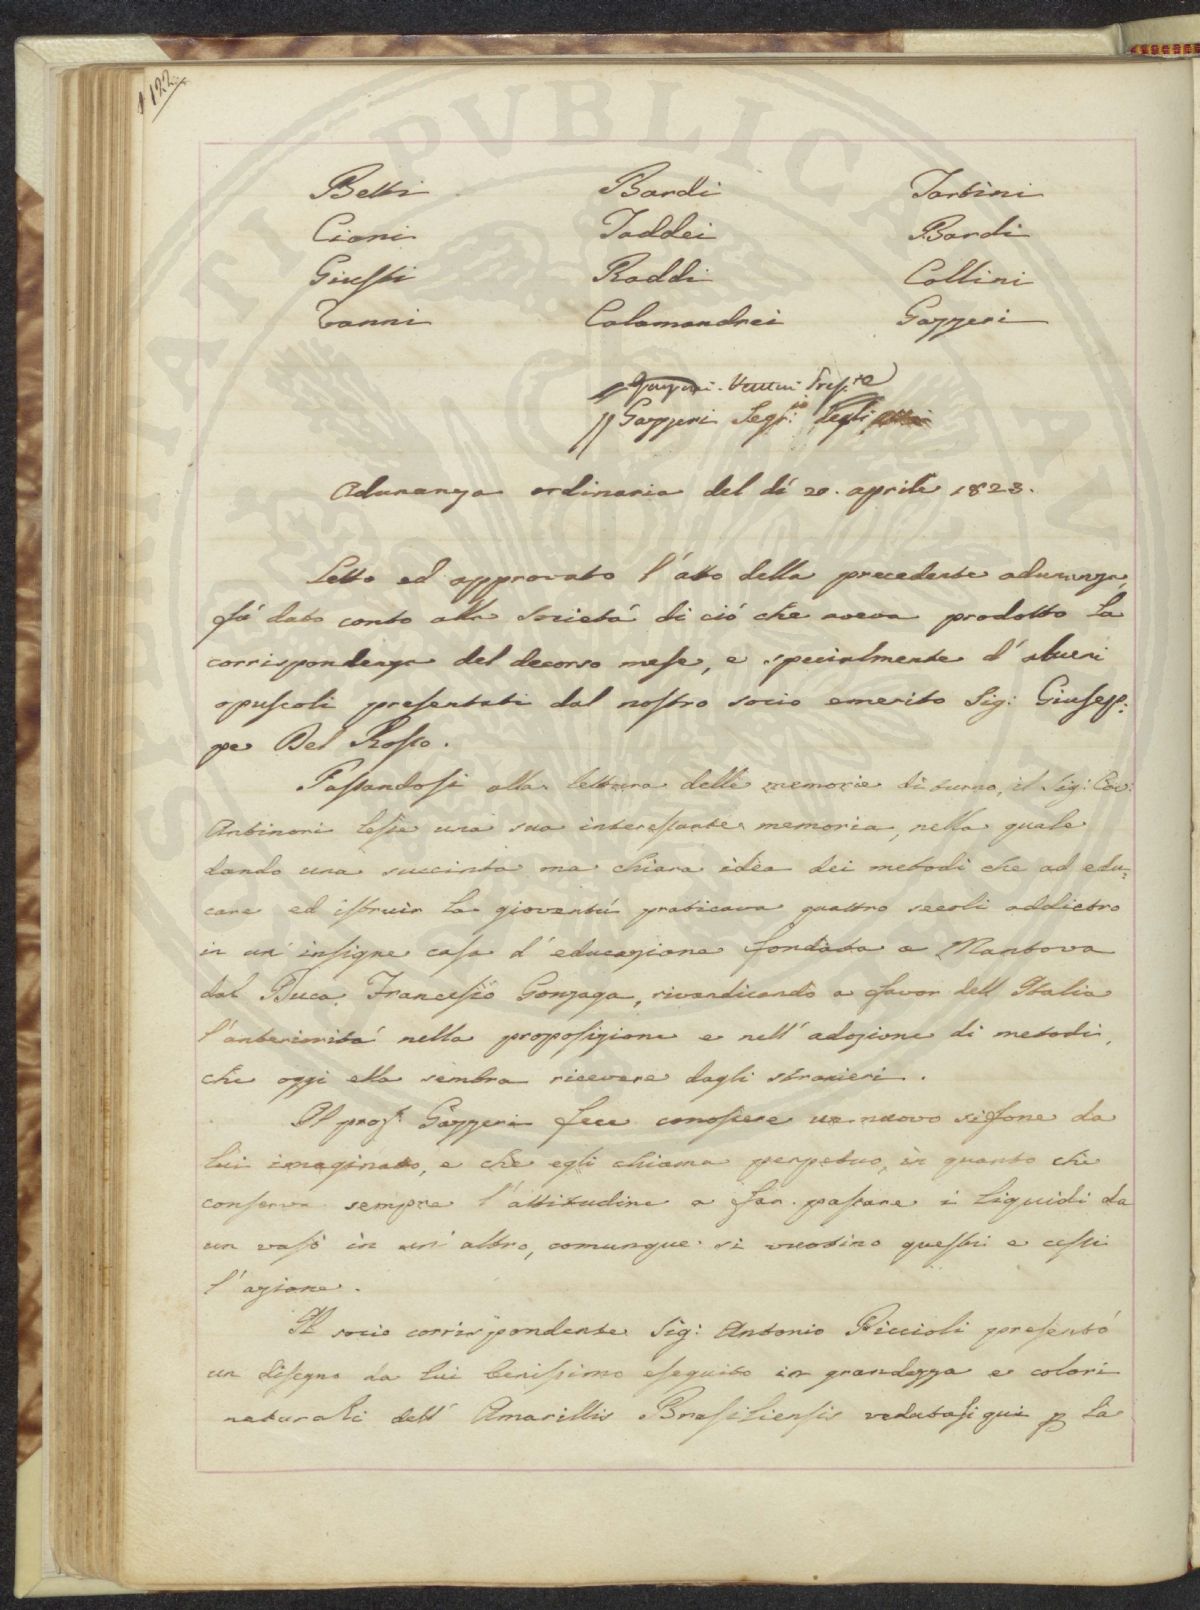 122
Betti Bardi Tartini
Cioni Taddei Bardi
Giusti Raddi Collini
Vanni Calamandrei Gazzeri
Gazzeri Segr:io degli atti
Adunanza ordinaria del dí 20. aprile 1823.
Letto ed approvato l'atto della precedente adunanza,
fú dato conto alla Societá di ció che aveva prodotto la
corrispondenza del decorso mese, e specialmente d'alcuni
opuscoli presentati dal nostro socio emerito Sig: Giusep:
pe Del Rosso.
Passandosi alla lettura delle memorie di turno, il Sig: Cav:
Antinori lesse una sua interessante memoria, nella quale
dando una succinta ma chiara idea dei metodi che ad edu:
care ed istruir la gioventú praticava quattro secoli addietro
in un' insigne casa d'educazione fondata a Mantova
dal Duca Francesco Gonzaga, rivendicando a favor dell Italia
l'anterioritá nella proposizione e nell'adozione di metodi,
che oggi ella sembra ricevere dagli stranieri.
Il prof. Gazzeri fece conoscere un nuovo sifone da
lui imaginato, e che egli chiama perpetuo, in quanto che
conserva sempre l'attitudine a far passare i liquidi da
un vaso in un' altro, comunque si vuotino questi e cessi
l'azione.
Il socio corrispondente Sig: Antonio Piccioli presentó
un disegno da lui benissimo eseguito in grandezza e colori
naturali dell' Amarillis Brasiliensis vedutasi qui p la